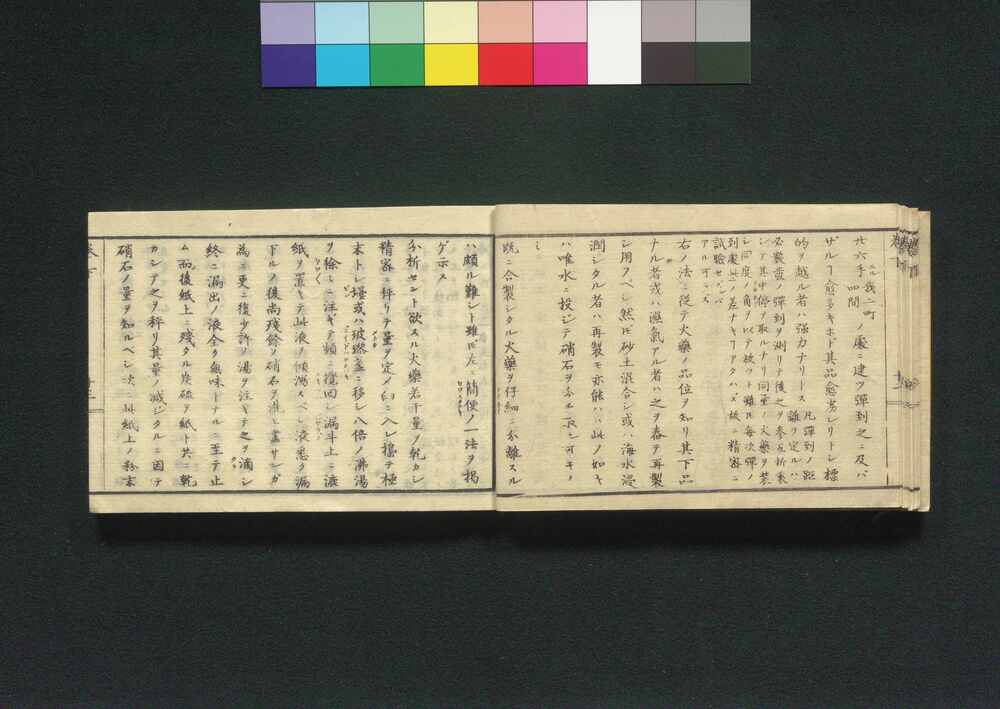 廿六手四間我二町ノ處ニ建ツ彈到之ニ及バ
ザルヿ愈多キホド其品愈劣レリトシ標
的ヲ越ル者ハ强力ナリトス凡彈到ノ距離ヲ定ルハ
數番ノ彈到ヲ測リテ後之ヲ
シテ其中停ヲ取ルナリ同量ノ火藥ヲ装
シ同度ノ角ヲ以テ放ツト雖ル每次彈ノ
到處此ノ差ナキヿアタハズ故ニ精密ニ
試驗セズンバアル可ラズ
右ノ法ニ從テ火藥ノ品位ヲ知リ其下品
ナル者或ハ濕氣アル者ハ之ヲ舂テ再製
シ用フベシ然𪜈砂土混合シ或ハ海水浸
潤シタル者ハ再製モ亦能ハズ此ノ如キ
ハ唯水ニ投ジテ硝石ヲ取ル可キノ
ミ
既ニ合製シタル火藥ヲ仔細ニ分離スル
ハ頗ル難シト雖𪜈左ニ簡便ノ一法ヲ揭
ゲ示ス
分析セント欲スル火藥若干量ヲ乾カシ
精密ニ秤リテ量ヲ定メ臼ニ入レ擣テ極
末トシ壜或ハ玻璃盞ニ移シ八倍ノ沸湯
ヲ徐々ニ注ギテ頻ニ攪回シ漏斗上ニ漉
紙ヲ置キテ此液ヲ傾瀉スベシ液悉ク漏
下ルノ後尚殘餘ノ硝石ヲ洗ヒ盡サンガ
為ニ更ニ復少許ノ湯ヲ注ギテ之ヲ滴シ
終ニ漏出ノ液全ク無味トナルニ至テ止
ム而後紙上ニ殘タル炭硫ヲ紙ト共ニ乾
カシテ之ヲ秤リ其量ノ減ジタルニ因テ
硝石ノ量ヲ知ルベシ次ニ此紙上ノ粉末